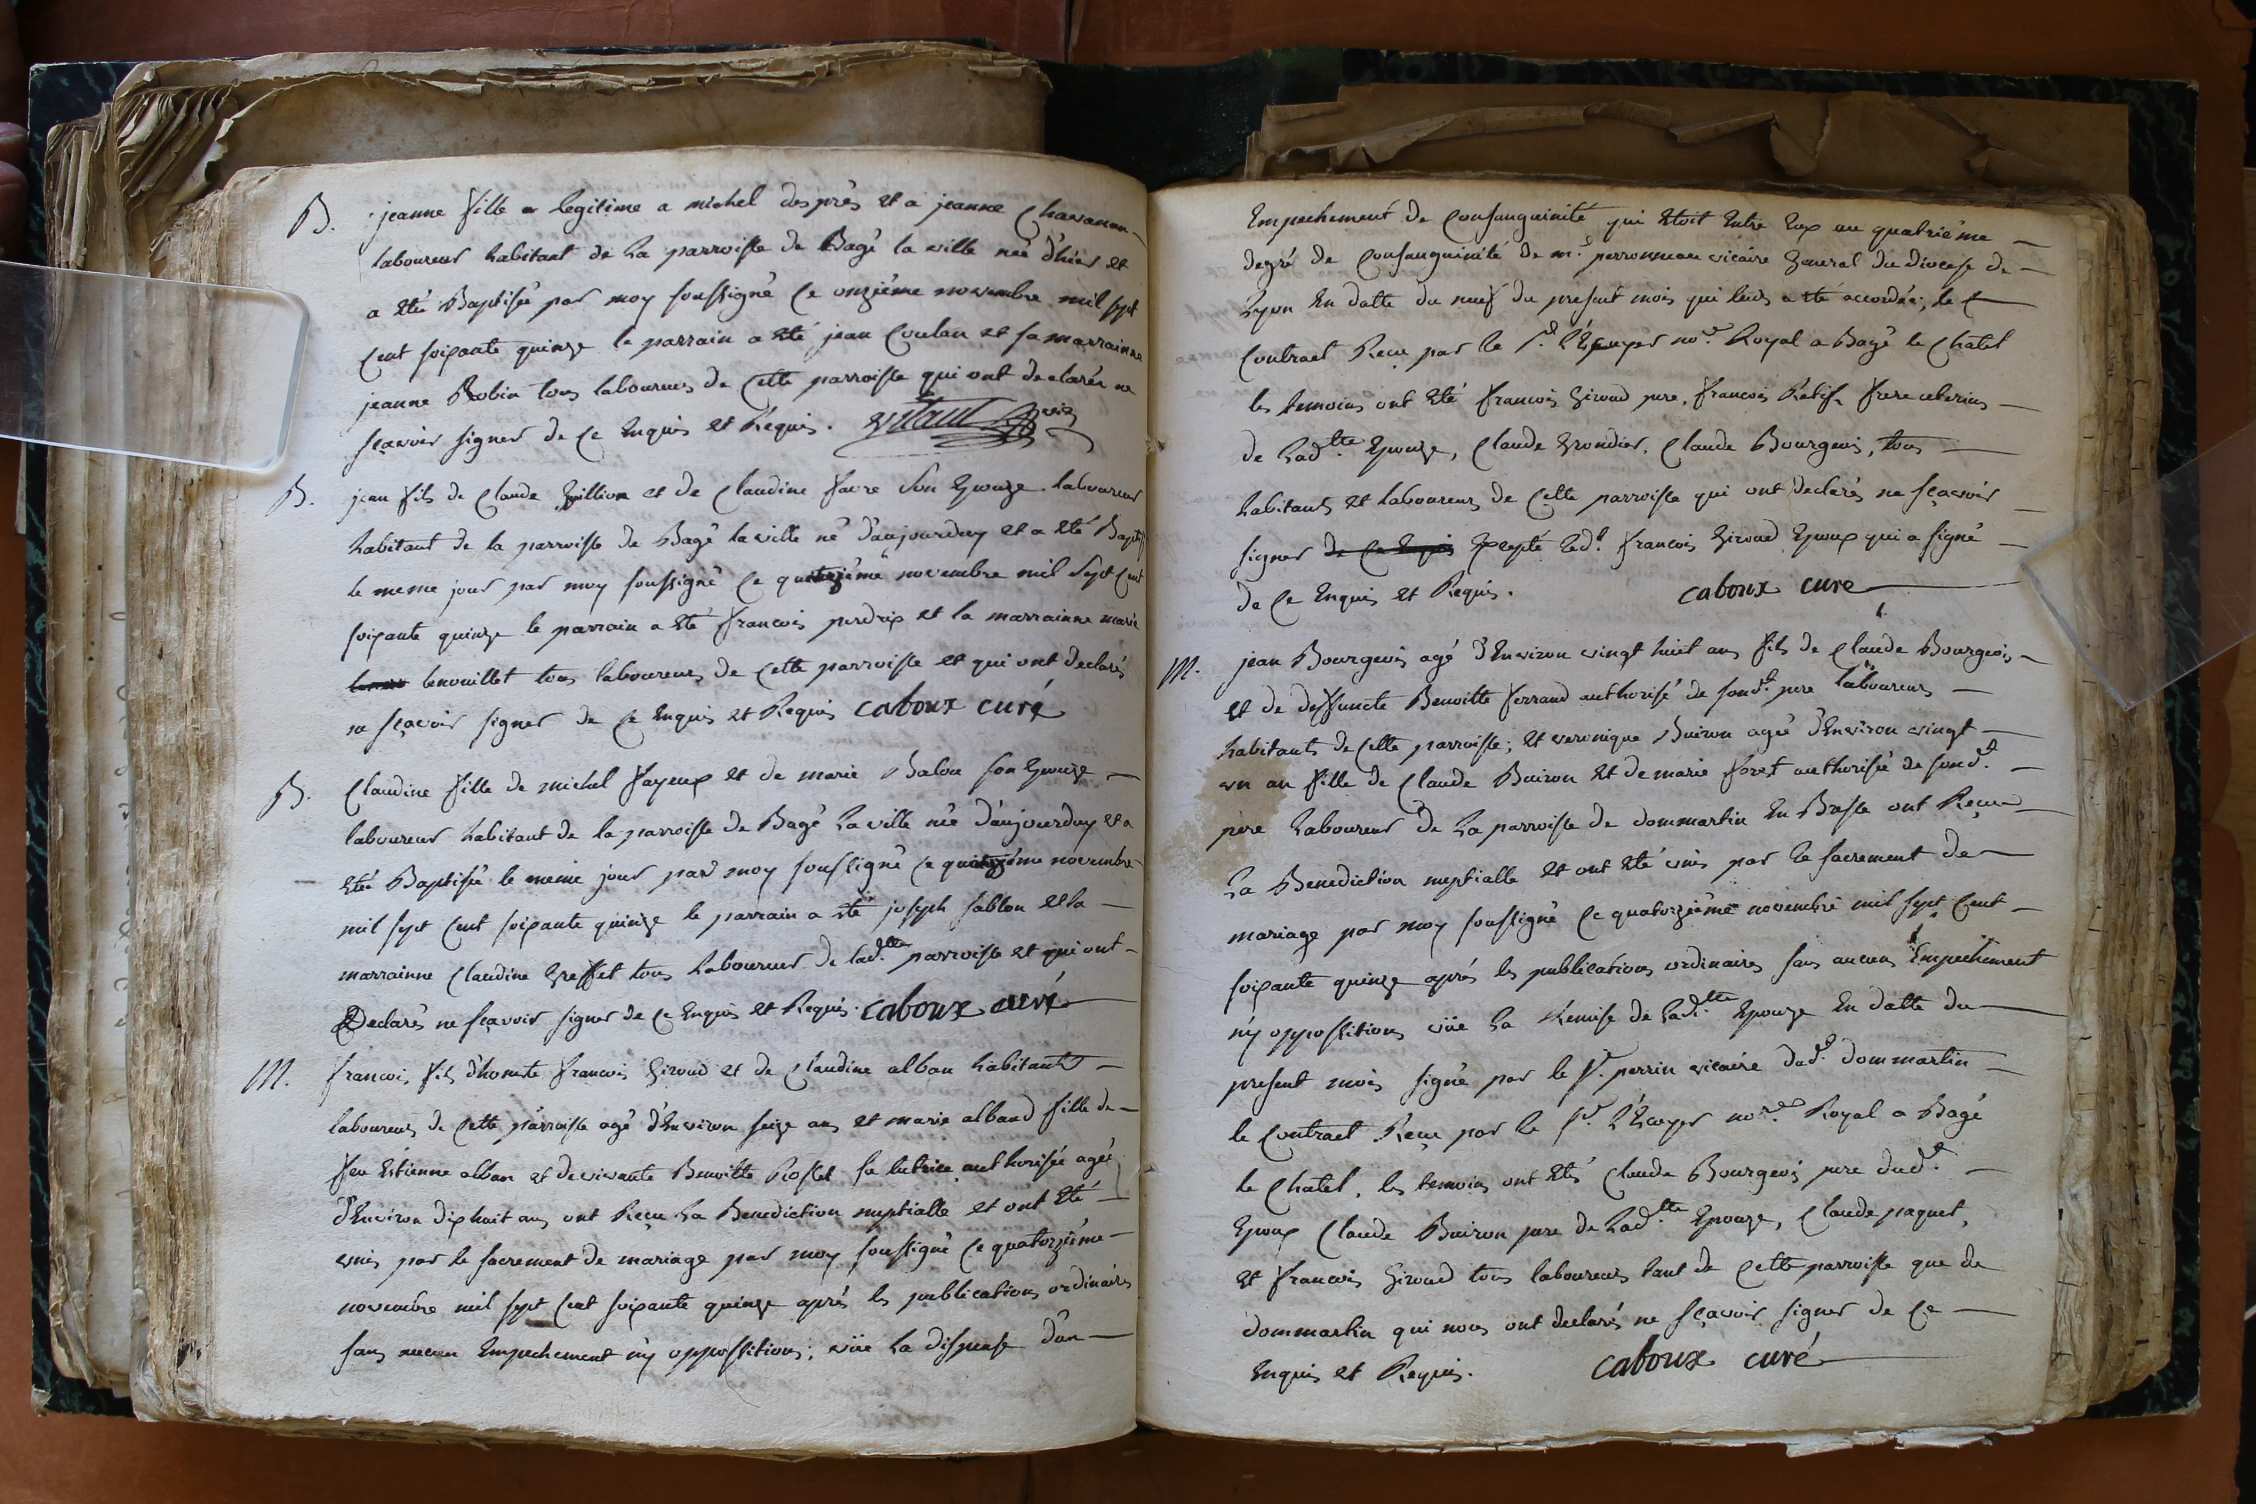 B. jeanne fille legitime a michel desprès et a jeanne Chavanon
laboureur habitant de la parroisse de Bagé la ville née d'hier et
a eté Baptisée par moy soussigné ce onzième novembre mil sept
cent soixante quinze le parrain a eté jean Coulon et sa marrainne
jeanne Robin tous laboureurs de cette parroisse qui ont declarés ne
sçavoir signer de ce enquis et Requis. vic
B. jean fils de Claude et de Claudine favre son Epouze laboureur
habitant de la parroisse de Bagé laville né d'aujourduy et a eté Baptisé
le meme jour par moy soussigné ce quatorzième novembre mil sept cent
soixante quinze le parrain a eté francois perdrix et la marrainne marie
benouillet tous laboureurs de cette parroisse et qui ont declarés
ne sçavoir signer de ce enquis et Requis caboux curé
B. Claudine fille de michel fayeux et de marie Balou son Epouze
laboureur habitant de la parroisse de Bagé Laville née d'aujourduy et a
eté Baptisée le meme jour par moy soussigné ce novembre
mil sept cent soixante quinze le parrain a eté joseph sablon et la
marrainne Claudine Greffet tous Laboureurs de lad.tte parroisse et qui ont
Declarés ne sçavoir signer de ce enquis et Requis. caboux curé
M. francois fils d'honete francois Giroud et de Claudine alban habitants
laboureurs de cette parroisse agé d'Environ seize ans et marie alband fille de
feu Etienne alban et de vivante Benoitte Rosset sa tutrice authorisée agée
d'Environ dixhuit ans ont Reçu La Benediction nuptialle et ont eté
unis par le sacrement de mariage par moy soussigné ce quatorzième
novembre mil sept cent soixante quinze après les publications ordinaires
sans aucun Empechement ny oppossitions; vüe La dispense d'un
Empechement de Consanguinité qui etoit Entre Eux au quatrième
degré de Consanguinité de m.r perronneau vicaire General du diocese de
Lyon En datte du neuf du present mois qui leurs a eté accordée; le
Contract Reçu par le s.r L'Ecuyer no.re Royal a Bagé le Chatel
les temoins ont eté francois Giroud pere, francois Rétif frere uterins
de Lad.tte Epouze, Claude Grondier, Claude Bourgeois, tous
habitants et laboureurs de cette parroisse qui ont declarés ne sçavoir
signer de ce Enquis Excepté led.t francois Giroud Epoux qui a signé
de ce enquis et Requis. caboux cure
M. jean Bourgeois agé d'Environ vingt huit ans fils de Claude Bourgeois
et de deffuncte Benoitte ferrand authorisé de sond.t pere laboureurs
habitants de cette parroisse; et veronique Buiron agée d'Environ vingt
un an fille de Claude Buiron et de marie forest authorisée de sond.t
pere Laboureur de La parroisse de dommartin En Bresse ont Reçu
La Benediction nuptialle et ont eté unis par le sacrement de
mariage par moy soussigné ce quatorzième novembre mil sept cent
soixante quinze après les publications ordinaires sans aucuns Empechement
ny oppossitions vüe La Remise de Lad.tte Epouze En datte du
present mois signé par le s.r perrin vicaire dud.t dommartin
le Contract Reçu par le s.r L'Ecuyer no.re Royal a Bagé
le Chatel, les temoins ont etés Claude Bourgeois pere dud.t
Epoux Claude Buiron pere de Lad.tte Epouze, Claude paquet,
et francois Giroud tous laboureurs tant de cette parroisse que de
dommartin qui nous ont declarés ne sçavoir signer de ce
enquis et Requis. caboux curé